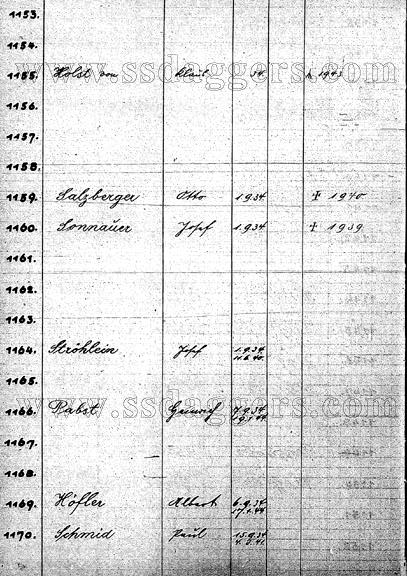 1153.
1154.
1155. Holst von Klaus 34. 1943
www.ssdaggers.com
1156.
1157.
1158.
1159. Salzberger Otto 1.9.34 ✝ 1940
1160. Sonnauer Josef 1.9.34 ✝ 1939
1161.
1162.
1163.
1164. Ströhlein Josef 1.9.34.
1165.
1166. Rabst Heinrich 7.9.34
www.ssdaggers.com
1167.
1168.
1169. Höfler Albert 6.9.34
17.1.44
1170. Schmid Paul 15.9.34